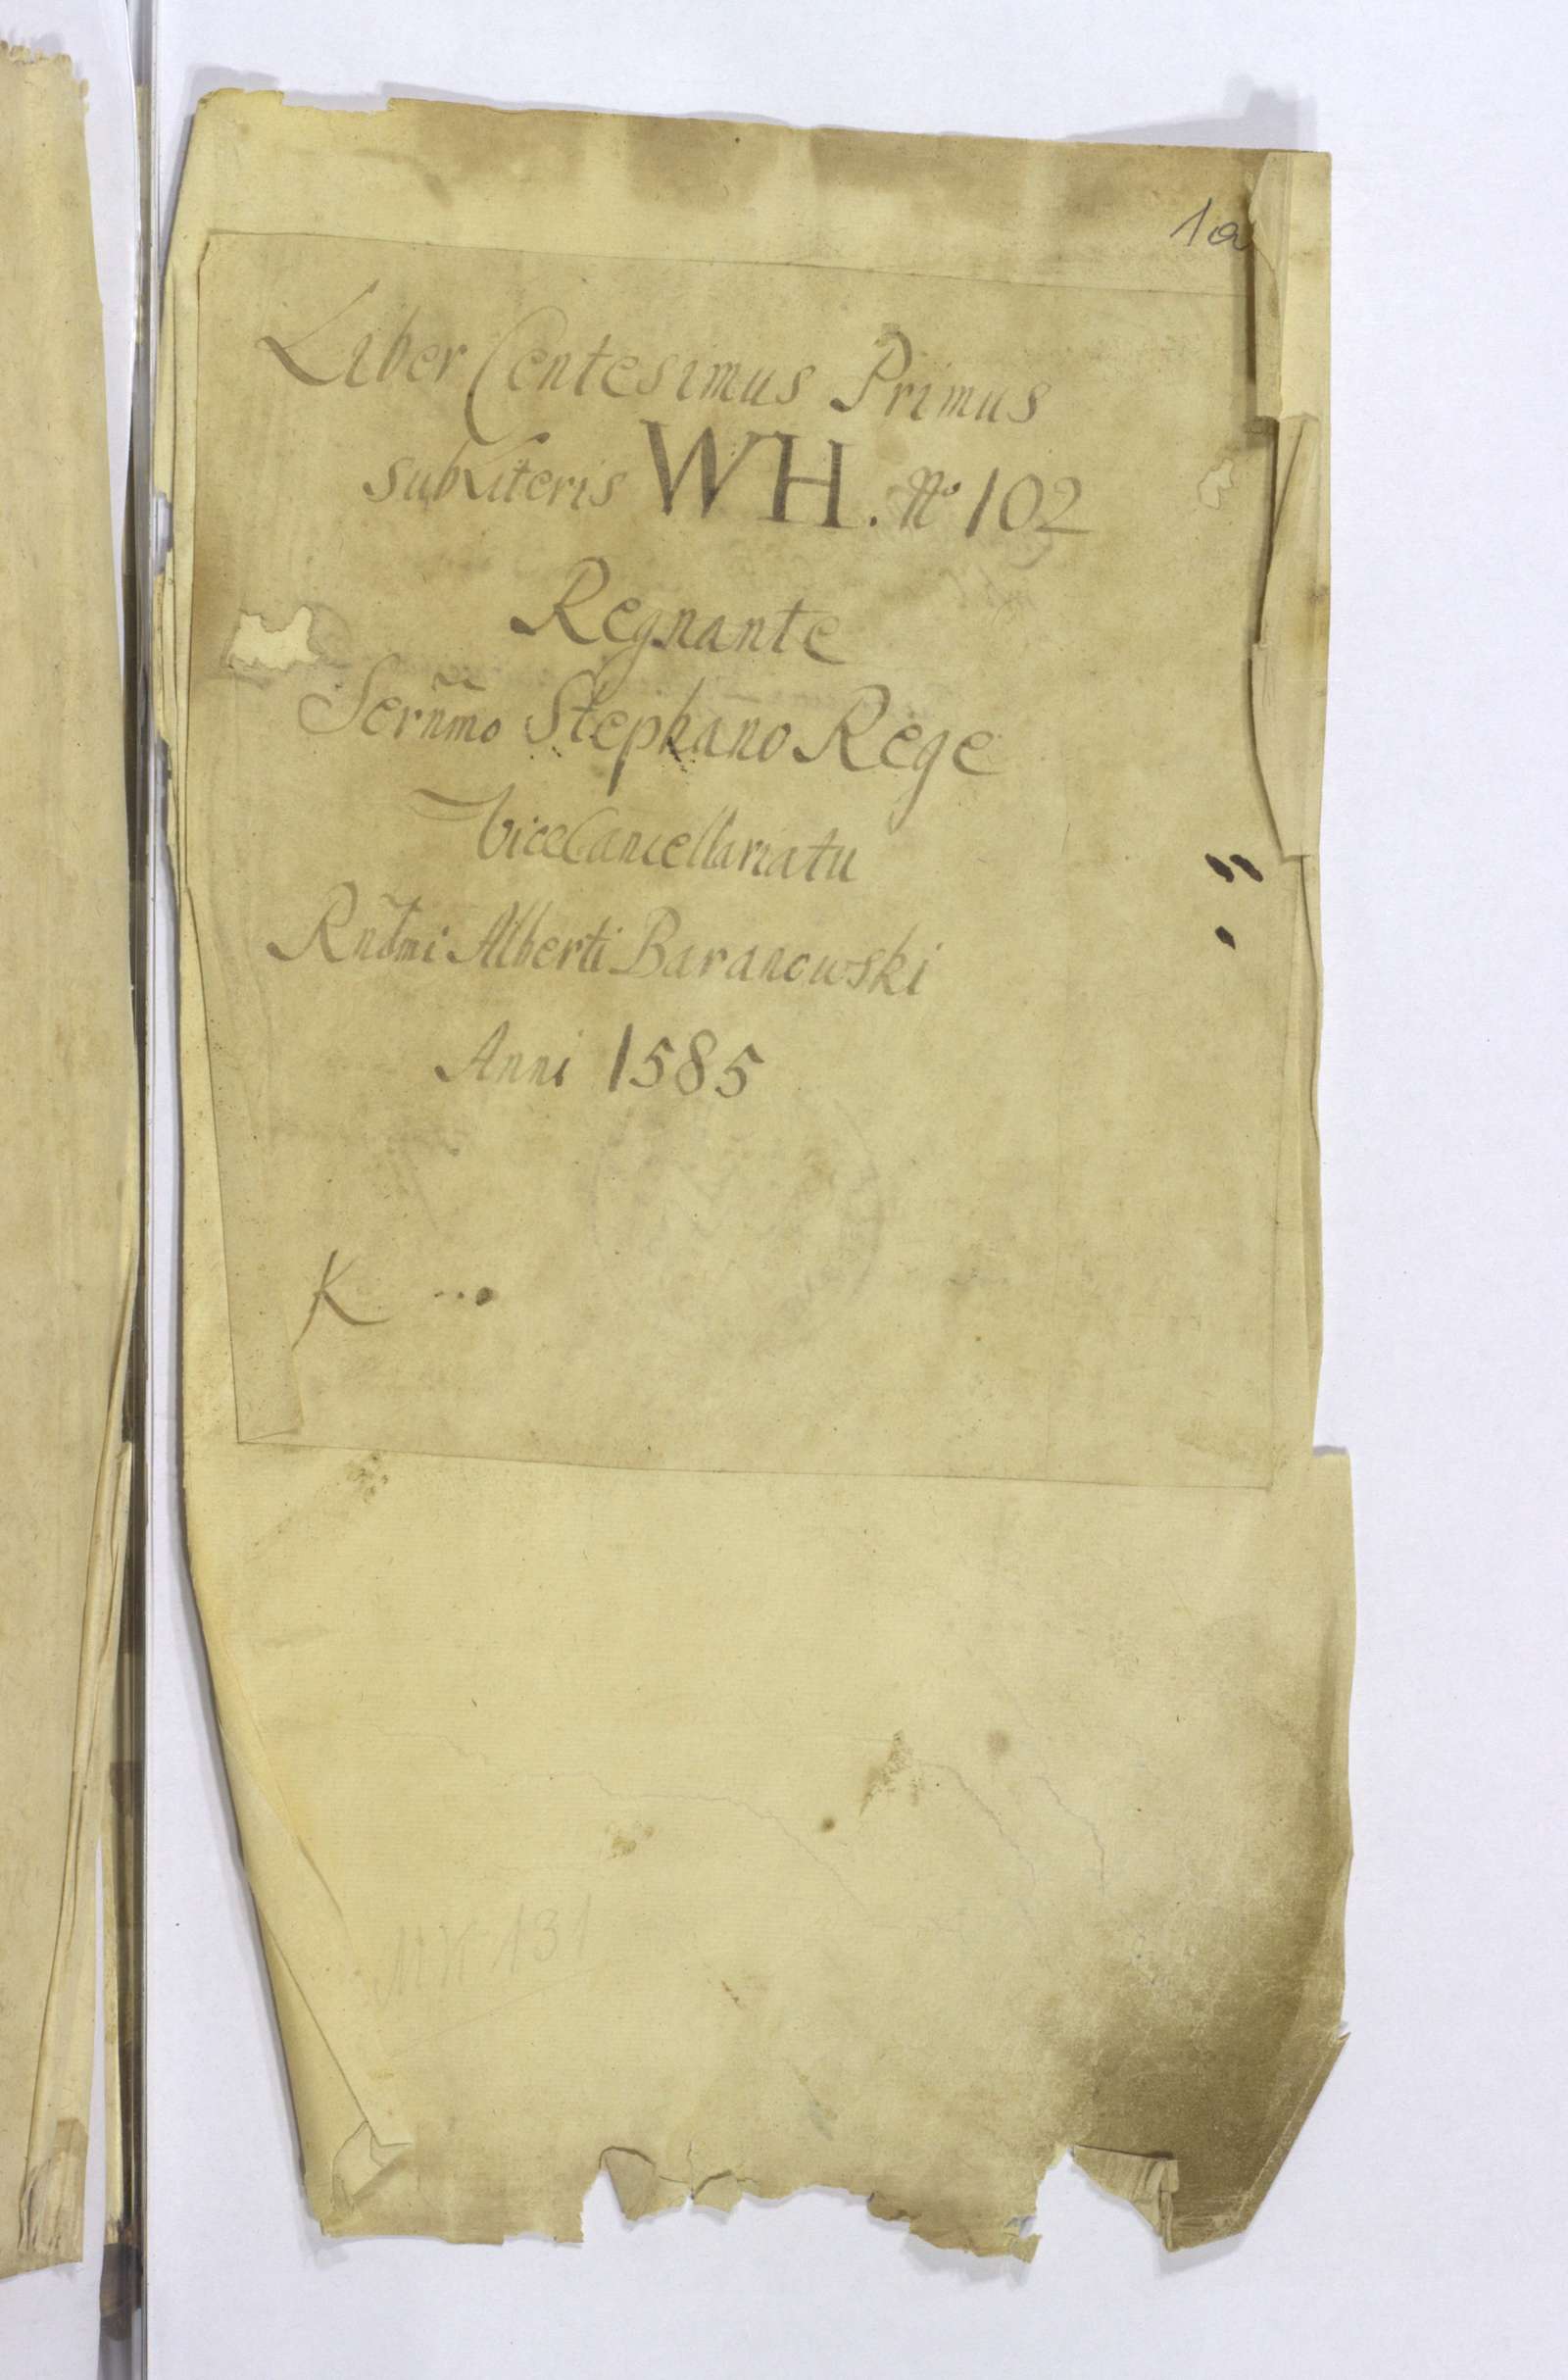 1a
Liber Centesimus Primus
sub Literis WH. No 102
Regnante
Serñm̃o Stephano Rege
ViceCancellariatu
Rñdmi Alberti Baranowski
Anni 1585
K ...
MK 131